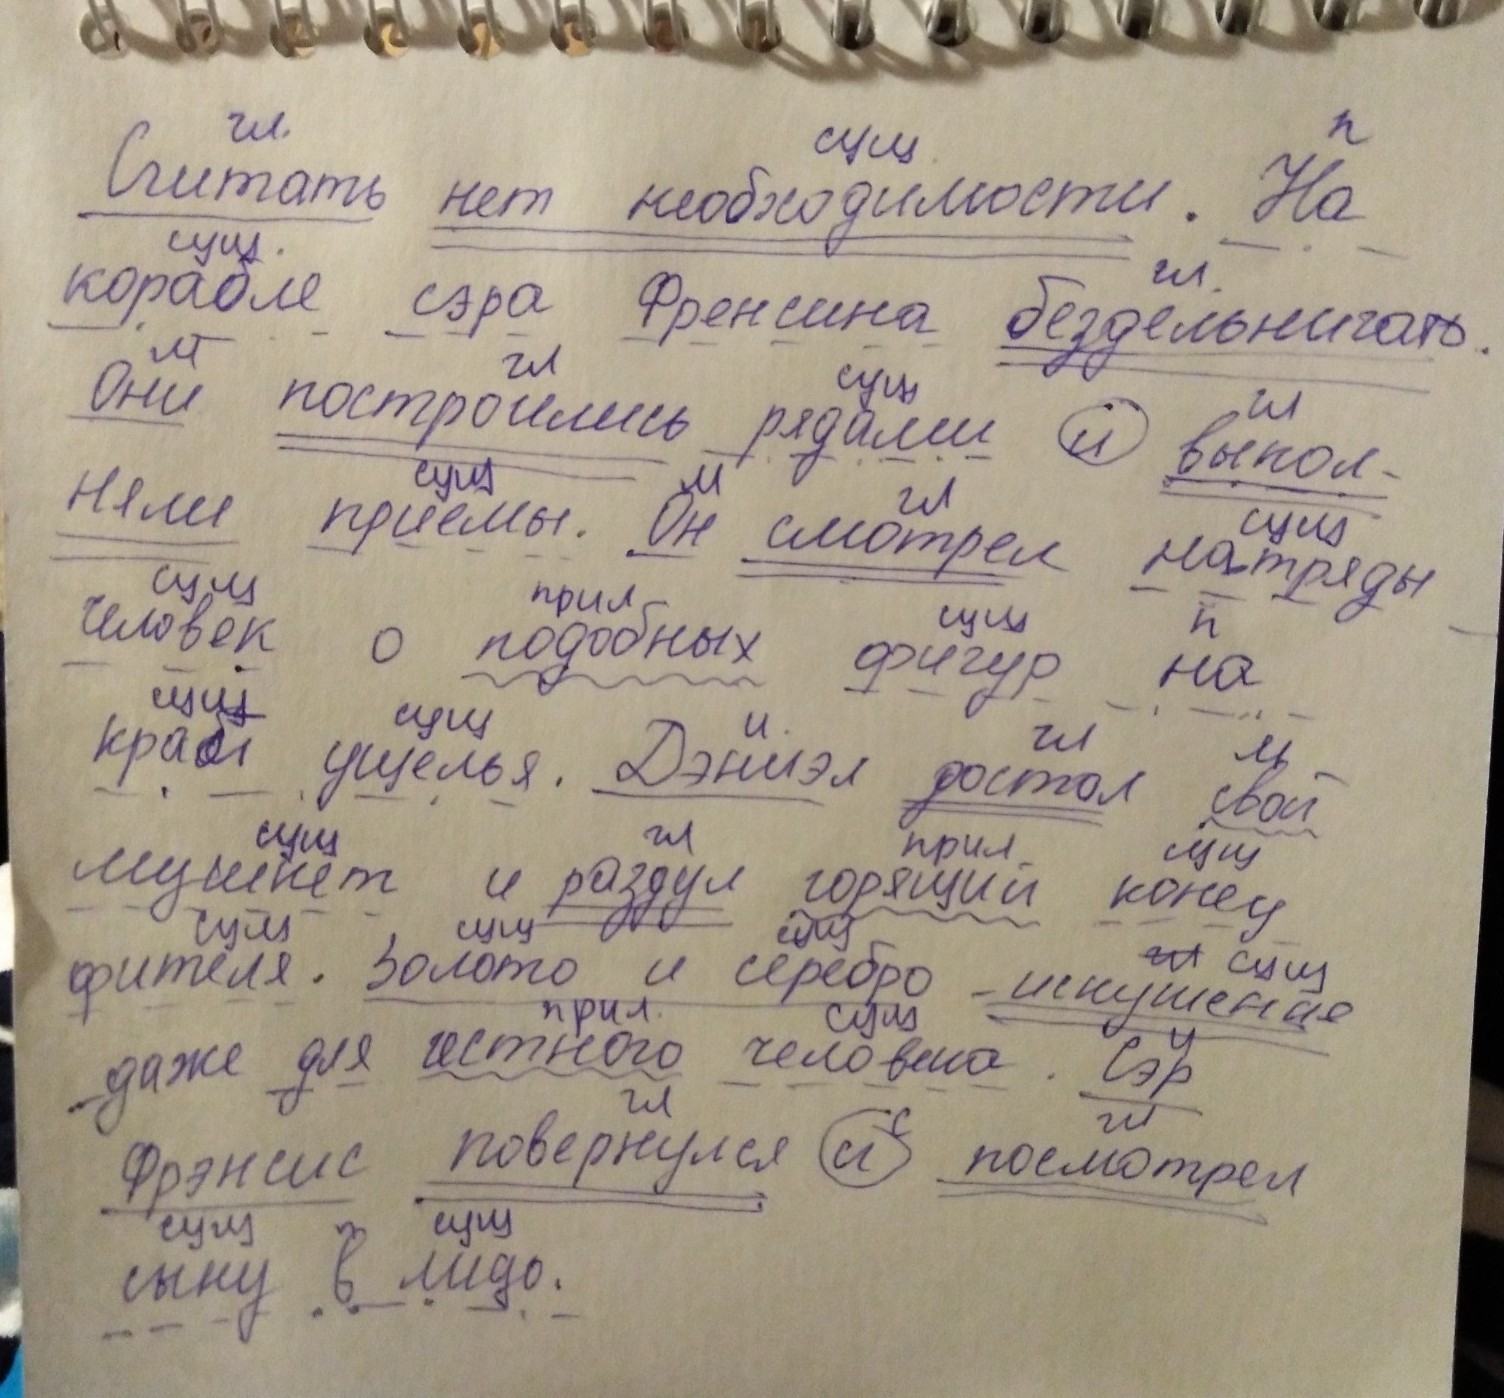 гл. сущ. п
Считать нет необходимости. На
сущ. гл.
корабле сэра Френсина бездельничать.
м гл сущ гл
Они построились рядами и выпол-
сущ м гл сущ
няли приемы. Он смотрел на тряды
сущ прил п
человек о подобных фигур на
сущ сущ и. гл м
краы ущелья. Дэниэл достал свой
сущ гл прил. сущ
мушкет и раздул горящий конец
сущ сущ сущ гл сущ
фителя. Золото и серебро - искушение
прил. сущ и
даже для честного человека. Сэр
гл с гл
Фрэнсис повернулся и посмотрел
сущ п сущ
сыну в лицо.